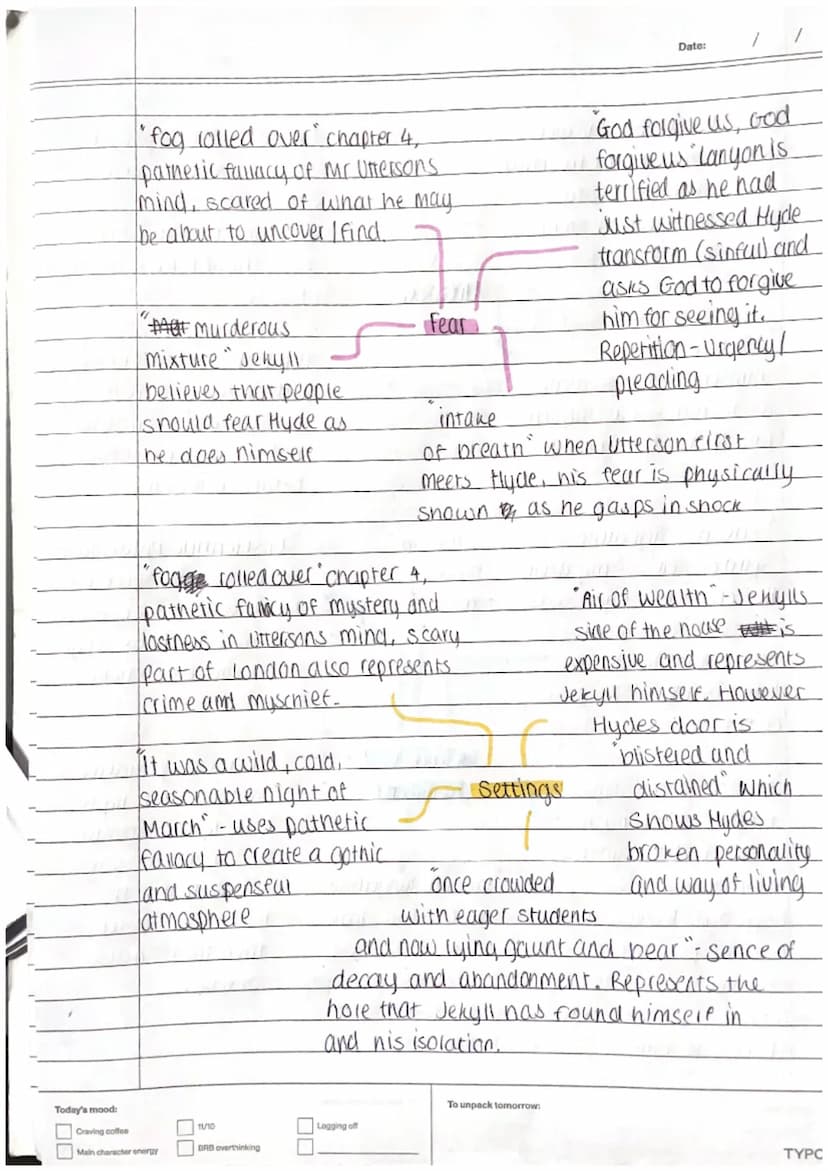 Date: / /
"fog rolled over" chapter 4,
pathetic fallacy of Mr Uttersons
mind, scared of what he may
be about to uncover/find.
"God forgive us, God
forgive us" Lanyon is
terrified as he had
just witnessed Hyde
transform (sinful) and
asks God to forgive
him for seeing it.
Repetition - Urgency/
pleading
Fear
" murderous
mixture" Jekyll
believes that people
should fear Hyde as
he does himself
"intake
of breath" when Utterson first
meets Hyde, his fear is physically
shown as he gasps in shock
"fog rolled over" chapter 4,
pathetic fallacy of mystery and
lostness in Uttersons mind, scary
part of London also represents
crime and myschief.
"Air of wealth" - Jekylls
side of the house is
expensive and represents
Jekyll himself. However
Hydes door is
"blistered and
distained" which
shows Hydes
broken personality
and way of living
Settings
"It was a wild, cold,
seasonable night of
March" - uses pathetic
fallacy to create a gothic
and suspensful
atmosphere
"once crowded
with eager students
and now lying gaunt and bear" - sence of
decay and abandonment. Represents the
hole that Jekyll has found himself in
and his isolation.
Today's mood:
Craving coffee
11/10
Logging off
Main character energy
BRB overthinking
To unpack tomorrow:
TYPO